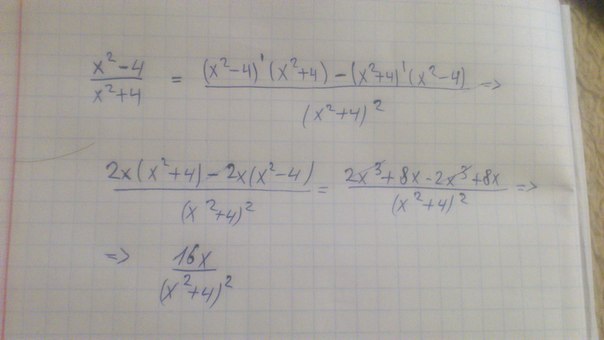 (x²-4)/(x²+4) = ((x²-4)'(x²+4)-(x²+4)'(x²-4))/(x²+4)² =>
(2x(x²+4)-2x(x²-4))/(x²+4)² = (2x³+8x-2x³+8x)/(x²+4)² =>
=> 16x/(x²+4)²